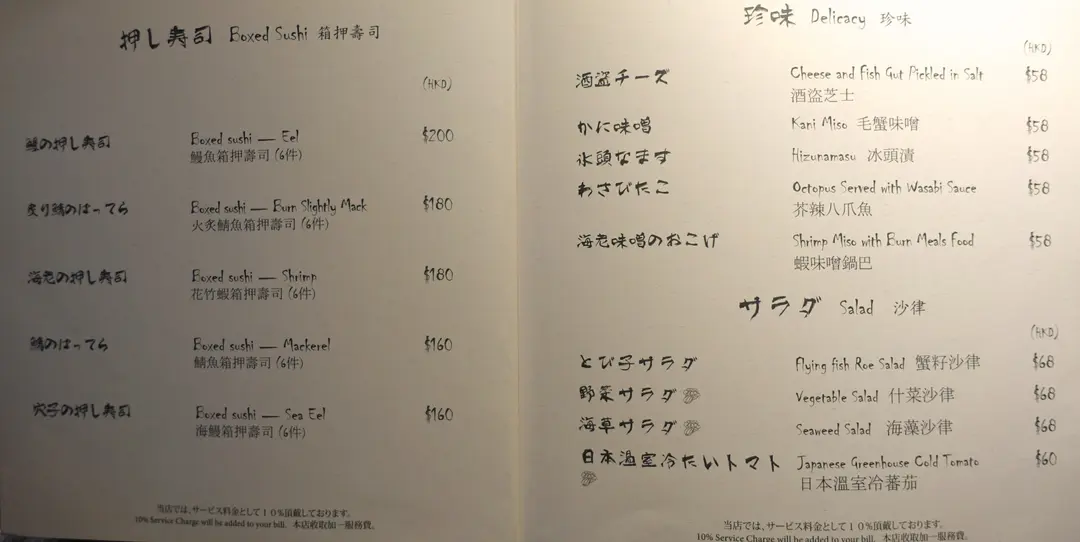 押し寿司 Boxed Sushi 箱押壽司
(HKD)
鰻の押し寿司 Boxed sushi — Eel $200
鰻魚箱押壽司 (6件)
炙り鯖のばってら Boxed sushi — Burn Slightly Mack $180
火炙鯖魚箱押壽司 (6件)
海老の押し寿司 Boxed sushi — Shrimp $180
花竹蝦箱押壽司 (6件)
鯖のばってら Boxed sushi — Mackerel $160
鯖魚箱押壽司 (6件)
穴子の押し寿司 Boxed sushi — Sea Eel $160
海鰻箱押壽司 (6件)
当店では、サービス料金として10%頂戴しております。
10% Service Charge will be added to your bill. 本店收取加一服務費。
珍味 Delicacy 珍味
(HKD)
酒盗チーズ Cheese and Fish Gut Pickled in Salt $58
酒盜芝士
かに味噌 Kani Miso 毛蟹味噌 $58
氷頭なます Hizunamasu 冰頭漬 $58
わさびたこ Octopus Served with Wasabi Sauce $58
芥辣八爪魚
海老味噌のおこげ Shrimp Miso with Burn Meals Food $58
蝦味噌鍋巴
サラダ Salad 沙律
(HKD)
とび子サラダ Flying fish Roe Salad 蟹籽沙律 $68
野菜サラダ Vegetable Salad 什菜沙律 $68
海草サラダ Seaweed Salad 海藻沙律 $68
日本温室冷たいトマト Japanese Greenhouse Cold Tomato $60
日本溫室冷蕃茄
当店では、サービス料金として10%頂戴しております。
10% Service Charge will be added to your bill. 本店收取加一服務費。